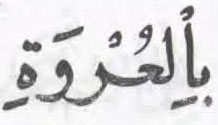 بِالْعُرْوَةِ